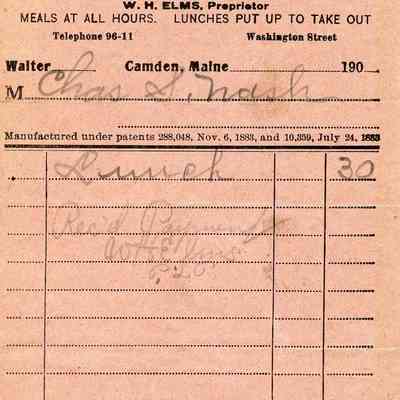 W. H. ELMS, Proprietor
MEALS AT ALL HOURS. LUNCHES PUT UP TO TAKE OUT
Telephone 96-11 Washington Street
Waiter Camden, Maine 190
M Chas S. Nash
Manufactured under patents 288,048, Nov. 6, 1883, and 10,359, July 24, 1883
Lunch 30
Rec'd Payment
W H Elms